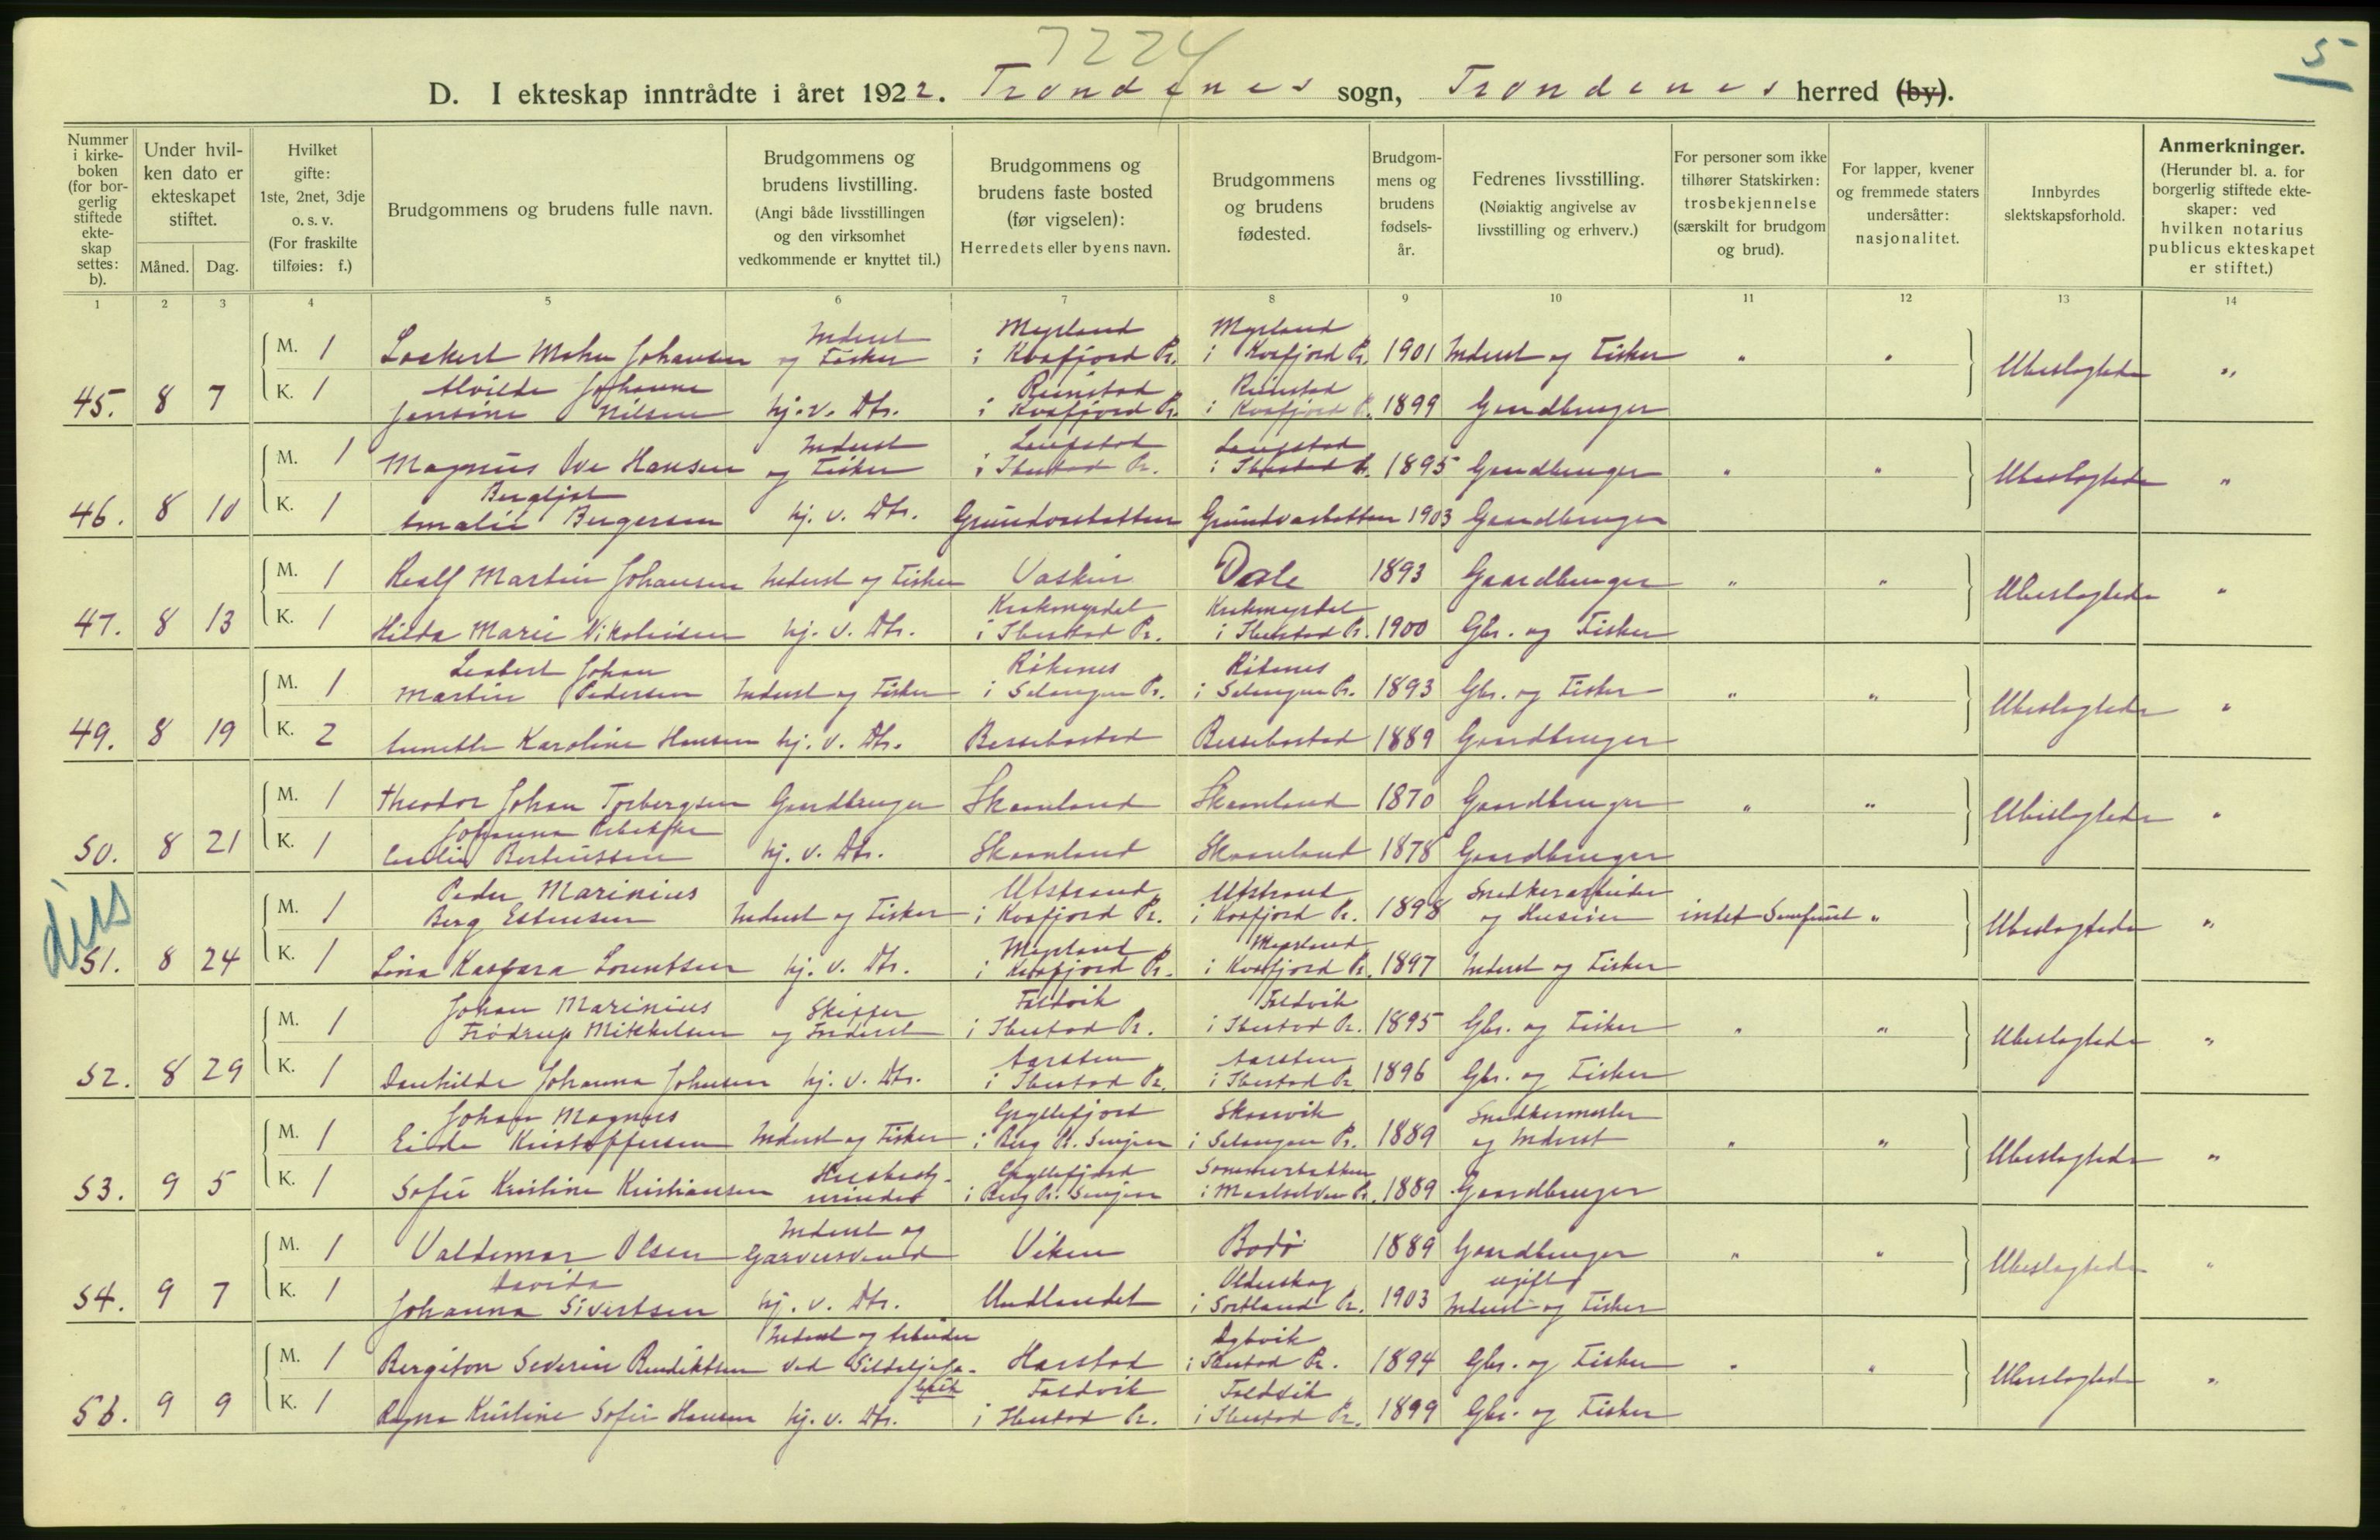 7224
5
D. I ekteskap inntrådte i året 1922. Trondenes sogn, Trondenes herred (by).
Nummer i kirkeboken (for borgerlig stiftede ekteskap settes: b).
Under hvilken dato er ekteskapet stiftet.
Måned. Dag.
Hvilket gifte: 1ste, 2net, 3dje o. s. v. (For fraskilte tilføies: f.)
Brudgommens og brudens fulle navn.
Brudgommens og brudens livstilling. (Angi både livsstillingen og den virksomhet vedkommende er knyttet til.)
Brudgommens og brudens faste bosted (før vigselen): Herredets eller byens navn.
Brudgommens og brudens fødested.
Brudgommens og brudens fødselsår.
Fedrenes livsstilling. (Nøiaktig angivelse av livsstilling og erhverv.)
For personer som ikke tilhører Statskirken: trosbekjennelse (særskilt for brudgom og brud).
For lapper, kvener og fremmede staters undersåtter: nasjonalitet.
Innbyrdes slektskapsforhold.
Anmerkninger. (Herunder bl. a. for borgerlig stiftede ekteskaper: ved hvilken notarius publicus ekteskapet er stiftet.)
1 2 3 4 5 6 7 8 9 10 11 12 13 14
M. 1 Johansen Inderst og Fisker Myrland i Kvæfjord Pr. Myrland i Kvæfjord Pr. 1901 Inderst og Fisker " " Ubeslægtede "
45. 8 7 K. 1 Alvilde Johanne Jensine Nilsen hj. v. Dtr. i Kvæfjord Pr. i Kvæfjord Pr. 1899 Gaardbruger
M. 1 Magnus Ove Hansen Inderst og Fisker i Ibestad Pr. i Ibestad Pr. 1895 Gaardbruger " " Ubeslægtede "
46. 8 10 K. 1 Bergljot Amalie Bergersen hj. v. Dtr. Grundvasbotten Grundvasbotten 1903 Gaardbruger
M. 1 Realf Martin Johansen Inderst og Fisker Vaskin Dale 1893 Gaardbruger " " Ubeslægtede "
47. 8 13 K. 1 Hilda Marie Nikolaisen hj. v. Dtr. i Ibestad Pr. i Ibestad Pr. 1900 Gbr. og Fisker
M. 1 Johan Martin Pedersen Inderst og Fisker i Salangen Pr. i Salangen Pr. 1893 Gbr. og Fisker " " Ubeslægtede "
49. 8 19 K. 2 Annette Karoline Hansen hj. v. Dtr. Bessebostad Bessebostad 1889 Gaardbruger
M. 1 Theodor Johan Torbergsen Gaardbruger Skaanland Skaanland 1870 Gaardbruger " " Ubeslægtede "
50. 8 21 K. 1 Johanna Rebekka Berteussen hj. v. Dtr. Skaanland Skaanland 1878 Gaardbruger
M. 1 Peder Marinius Berg Estensen Inderst og Fisker Utstrand i Kvæfjord Pr. Utstrand i Kvæfjord Pr. 1898 Snedkerarbeider og Husmier intet Samfund " Ubeslægtede "
diss
51. 8 24 K. 1 Lina Kaspara Lorentsen hj. v. Dtr. Myrland i Kvæfjord Pr. Myrland i Kvæfjord Pr. 1897 Inderst og Fisker
M. 1 Johan Marinius Frödrup Mikkelsen Skipper og Inderst Foldvik i Ibestad Pr. Foldvik i Ibestad Pr. 1895 Gbr. og Fisker " " Ubeslægtede "
52. 8 29 K. 1 Danhilda Johanna Johnsen hj. v. Dtr. Aarsten i Ibestad Pr. Aarsten i Ibestad Pr. 1896 Gbr. og Fisker
M. 1 Johan Magnus Eide Kristoffersen Inderst og Fisker Gryllefjord i Berg Pr. Senjen Skaarvik i Salangen Pr. 1889 Snedkermester og Inderst " " Ubeslægtede "
53. 9 5 K. 1 Sofie Kristine Kristiansen Husbestyrerinde Gryllefjord i Berg Pr. Senjen Sommerbakken i Maalselven Pr. 1889 Gaardbruger
M. 1 Valdemar Olsen Inderst og Garversvend Viken Bodö 1889 Gaardbruger " " Ubeslægtede "
54. 9 7 K. 1 Davida Johanna Sivertsen hj. v. Dtr. Undlandet i Sortland Pr. 1903 ugift Inderst og Fisker
M. 1 Bergiton Severin Bendiktsen Inderst og Arbeider ved Sildoljefabrik Harstad i Ibestad Pr. 1894 Gbr. og Fisker " " Ubeslægtede "
56. 9 9 K. 1 Ragna Kristine Sofie Hansen hj. v. Dtr. Foldvik i Ibestad Pr. Foldvik i Ibestad Pr. 1899 Gbr. og Fisker